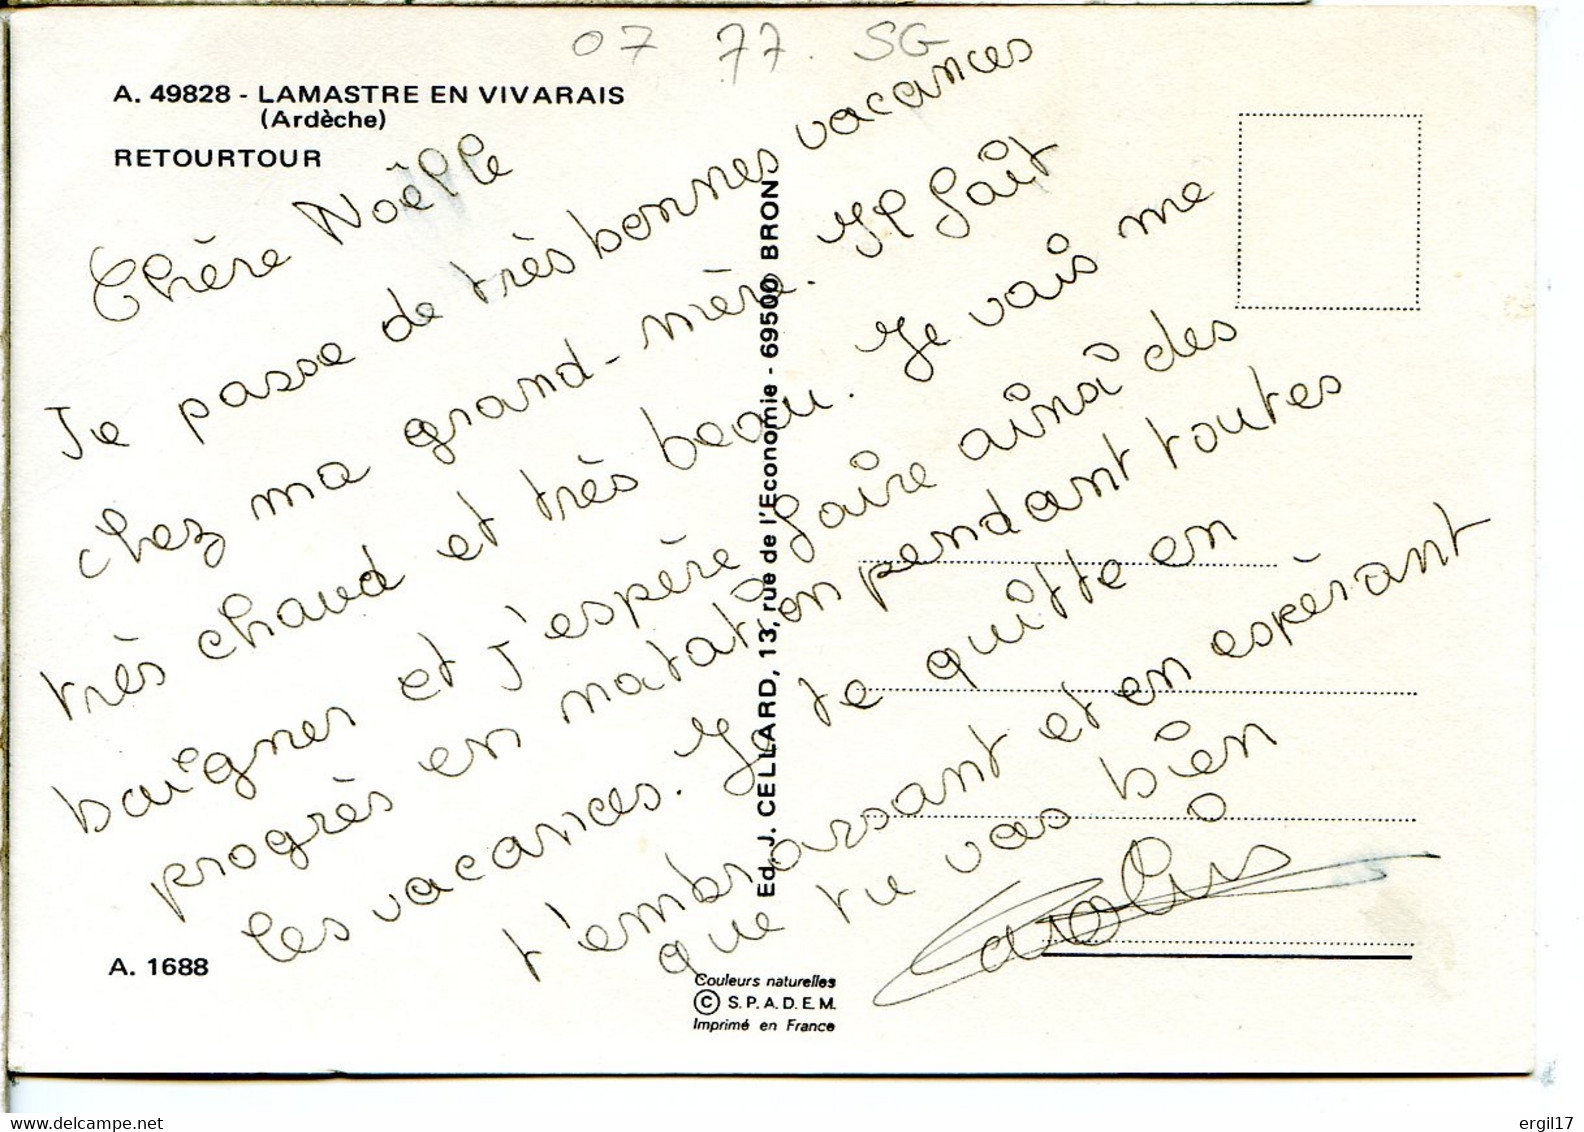 07 77. SG
A. 49828 - LAMASTRE EN VIVARAIS
(Ardèche)
RETOURTOUR
Chère Noëlle
Je passe de très bonnes vacances
chez ma grand-mère. Il fait
très chaud et très beau. Je vais me
baigner et j'espère faire ainsi des
progrès en natation pendant toutes
les vacances. Je te quitte en
t'embrassant et en espérant
que tu vas bien
Ed. J. CELLARD, 13, rue de l'Economie - 69500 BRON
A. 1688
Couleurs naturelles
© S.P.A.D.E.M.
Imprimé en France
www.delcampe.net
ergil17